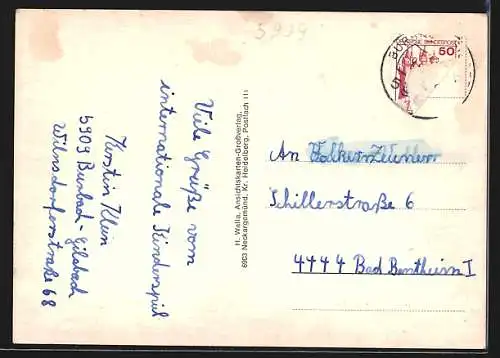 5909
Viele Grüße vom
internationale Kinderspiel
Kerstin Klein
5909 Burbach-Gilsbach
Wilnsdorferstraße 68
H. Walla, Ansichtskarten-Großverlag,
6903 Neckargemünd, Kr. Heidelberg, Postfach 111
50
An Volker
Schillerstraße 6
4444 Bad Bentheim I